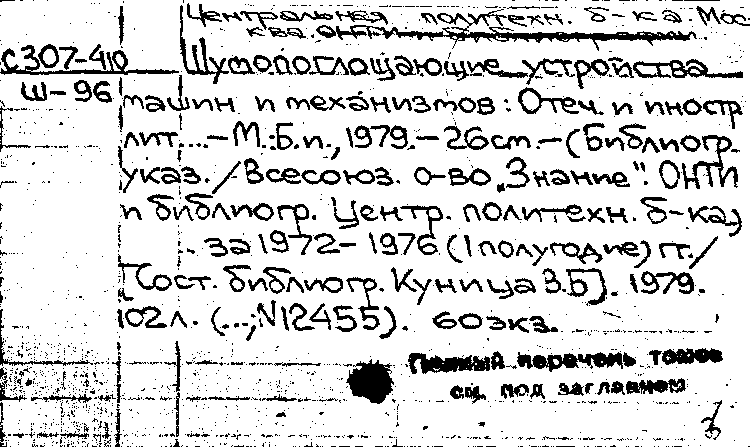 Центральная политехн. б-ка. Мос
ква.
с307-410 Шумопоглощающие устройства
Ш-96 машин и механизмов: Отеч. и иностр
лит....-М.:Б.и., 1979.-26см.-(Библиогр.
указ. /Всесоюз. о-во „Знание". ОНТИ
и библиогр. Центр. политехн. б-ка)
. за 1972-1976 (I полугодие) гг./
[Сост. библиогр. Куница З.Б]. 1979.
102л. (...;N12455). 60экз.
Полный перечень томов
см. под заглавием